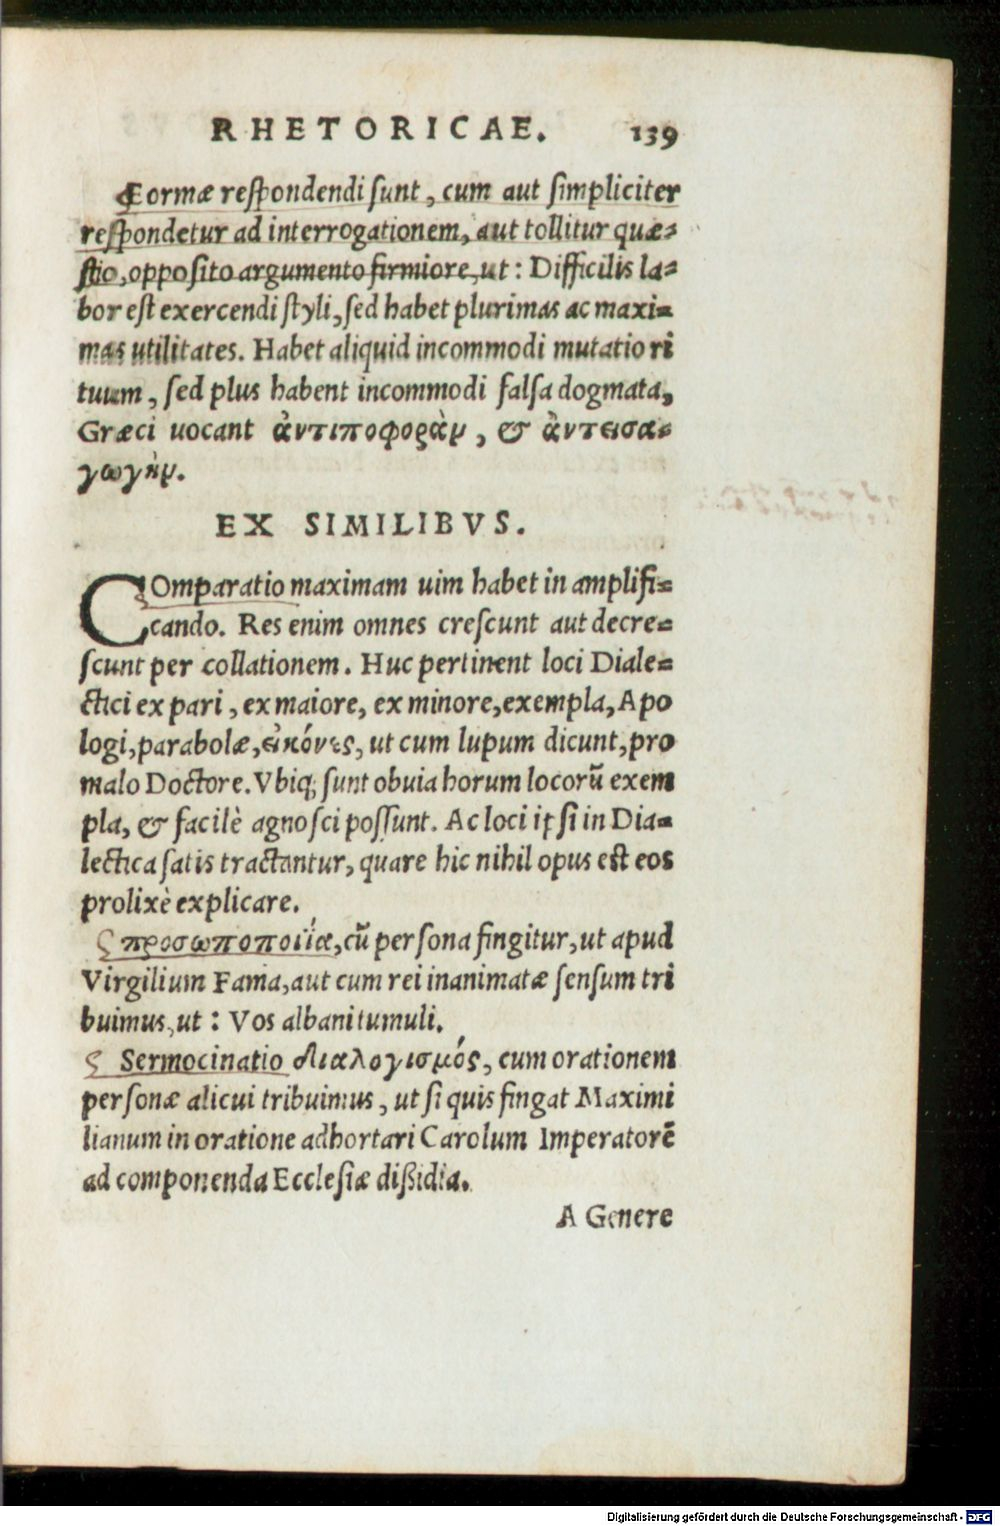 RHETORICAE. 139
Formæ respondendi sunt, cum aut simpliciter
respondetur ad interrogationem, aut tollitur quæ-
stio, opposito argumento firmiore, ut: Difficilis la-
bor est exercendi styli, sed habet plurimas ac maxi-
mas utilitates. Habet aliquid incommodi mutatio ri
tuum, sed plus habent incommodi falsa dogmata,
Græci uocant ἀντιποφορὰν, & ἀντεισα-
γωγὴν.
EX SIMILIBVS.
COmparatio maximam uim habet in amplifi-
cando. Res enim omnes crescunt aut decre-
scunt per collationem. Huc pertinent loci Diale-
ctici ex pari, ex maiore, ex minore, exempla, Apo
logi, parabolæ, εἰκόνες, ut cum lupum dicunt, pro
malo Doctore. Vbiq; sunt obuia horum locorũ exem
pla, & facilè agnosci possunt. Ac loci ipsi in Dia-
lectica satis tractantur, quare hic nihil opus est eos
prolixè explicare.
προσωποποιΐα, cũ persona fingitur, ut apud
Virgilium Fama, aut cum rei inanimatæ sensum tri
buimus, ut: Vos albani tumuli.
Sermocinatio διαλογισμός, cum orationem
personæ alicui tribuimus, ut si quis fingat Maximi
lianum in oratione adhortari Carolum Imperatorẽ
ad componenda Ecclesiæ dißidia.
A Genere
Digitalisierung gefördert durch die Deutsche Forschungsgemeinschaft - DFG